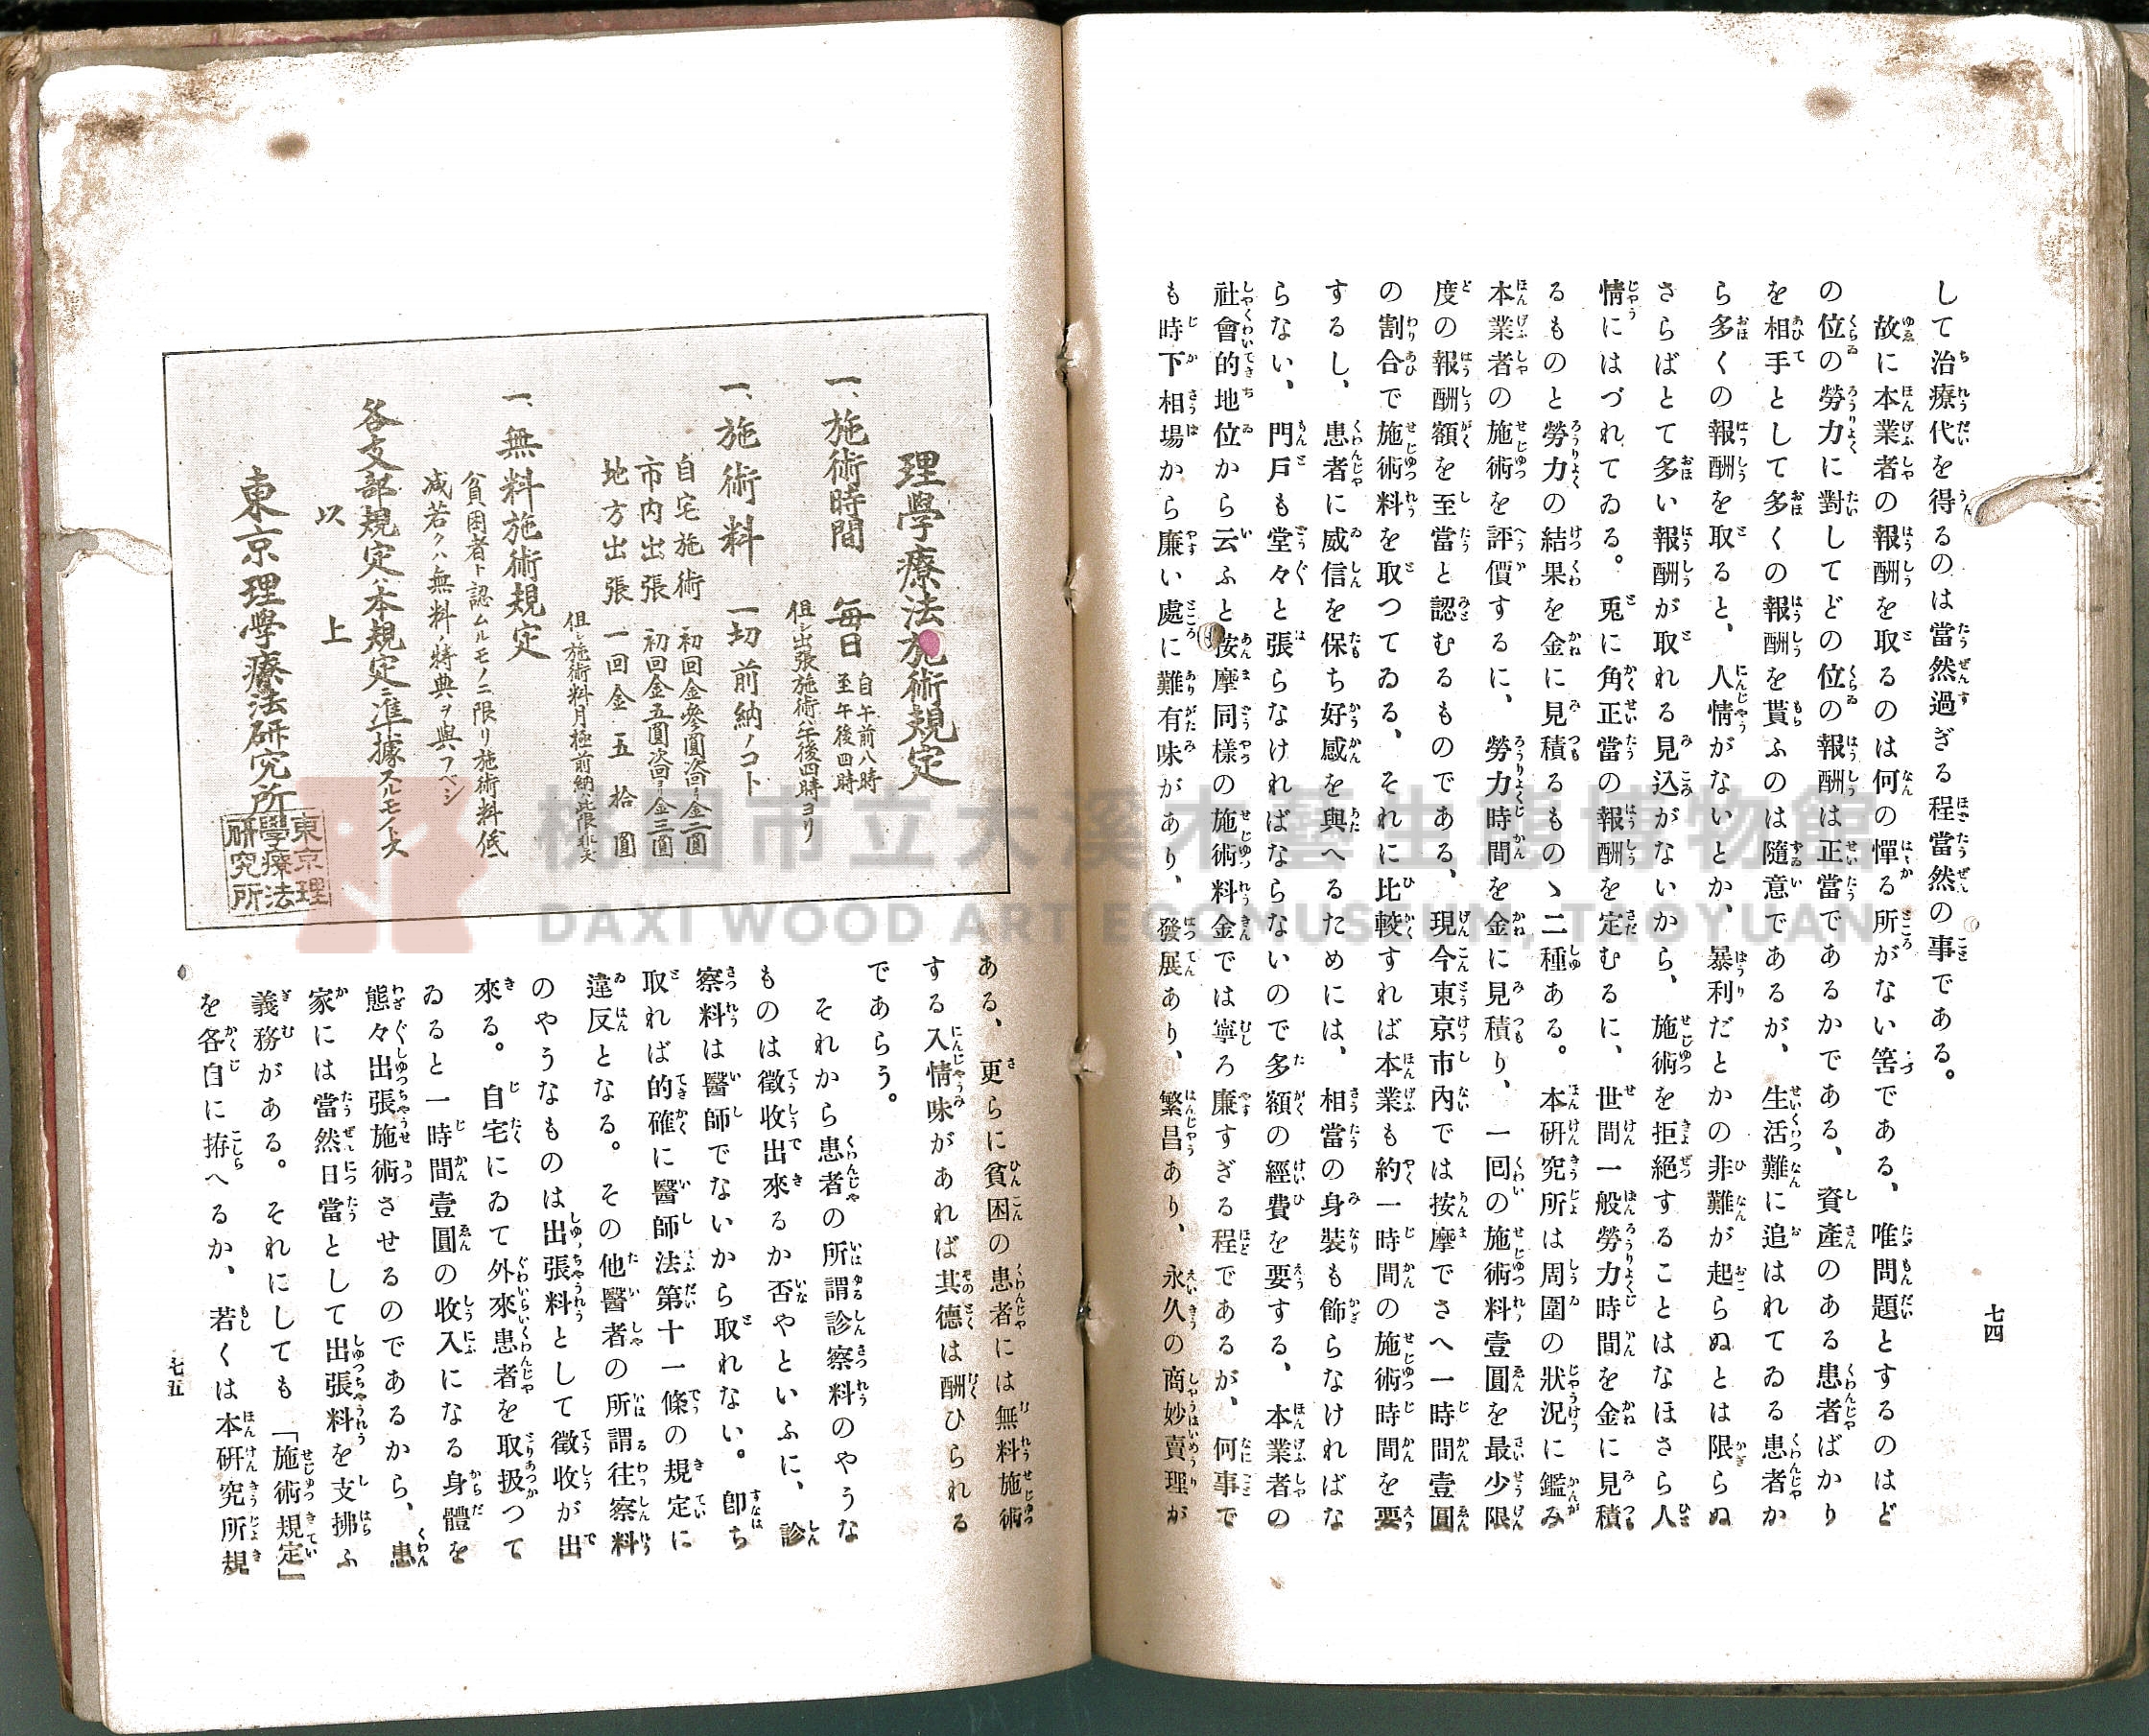 して治療代を得るのは當然過ぎる程當然の事である。
故に本業者の報酬を取るのは何の憚る所がない筈である、唯問題とするのはど
の位の勞力に對してどの位の報酬は正當であるかである、資產のある患者ばかり
を相手として多くの報酬を貰ふのは隨意であるが、生活難に追はれてゐる患者か
ら多くの報酬を取ると、人情がないとか、暴利だとかの非難が起らぬとは限らぬ
さらばとて多い報酬が取れる見込がないから、施術を拒絕することはなほさら人
情にはづれてゐる。兎に角正當の報酬を定むるに、世間一般勞力時間を金に見積
るものと勞力の結果を金に見積るものゝ二種ある。本硏究所は周圍の狀況に鑑み
本業者の施術を評價するに、勞力時間を金に見積り、一回の施術料壹圓を最少限
度の報酬額を至當と認むるものである、現今東京市內では按摩でさへ一時間壹圓
の割合で施術料を取つてゐる、それに比較すれば本業も約一時間の施術時間を要
するし、患者に威信を保ち好感を與へるためには、相當の身裝も飾らなければな
らない、門戶も堂々と張らなければならないので多額の經費を要する、本業者の
社會的地位から云ふと按摩同樣の施術料金では寧ろ廉すぎる程であるが、何事で
も時下相場から廉い處に難有味があり、發展あり、繁昌あり、永久の商妙賣理が
七四
理學療法施術規定
一、施術時間 每日 自午前八時
至午後四時
但シ出張施術ハ午後四時ヨリ
一、施術料 一切前納ノコト
自宅施術 初回金參圓次回ヨリ金二圓
市內出張 初回金五圓次回ヨリ金三圓
地方出張 一回金五拾圓
但シ施術料月極前納ハ此限非ズ
一、無料施術規定
貧困者ト認ムルモノニ限リ施術料低
减若クハ無料ノ特典ヲ與フベシ
各支部規定ハ本規定ニ準據スルモノトス
以上
東京理學療法硏究所
東京理
學療法
硏究所
ある、更らに貧困の患者には無料施術
する入情味があれば其德は酬ひられる
であらう。
それから患者の所謂診察料のやうな
ものは徵收出來るか否やといふに、診
察料は醫師でないから取れない。卽ち
取れば的確に醫師法第十一條の規定に
違反となる。その他醫者の所謂往察料
のやうなものは出張料として徵收が出
來る。自宅にゐて外來患者を取扱つて
ゐると一時間壹圓の收入になる身體を
態々出張施術させるのであるから、患
家には當然日當として出張料を支拂ふ
義務がある。それにしても「施術規定」
を各自に拵へるか、若くは本硏究所規
七五
桃園市立大溪木藝生態博物館
DAXI WOOD ART ECOMUSEUM, TAOYUAN